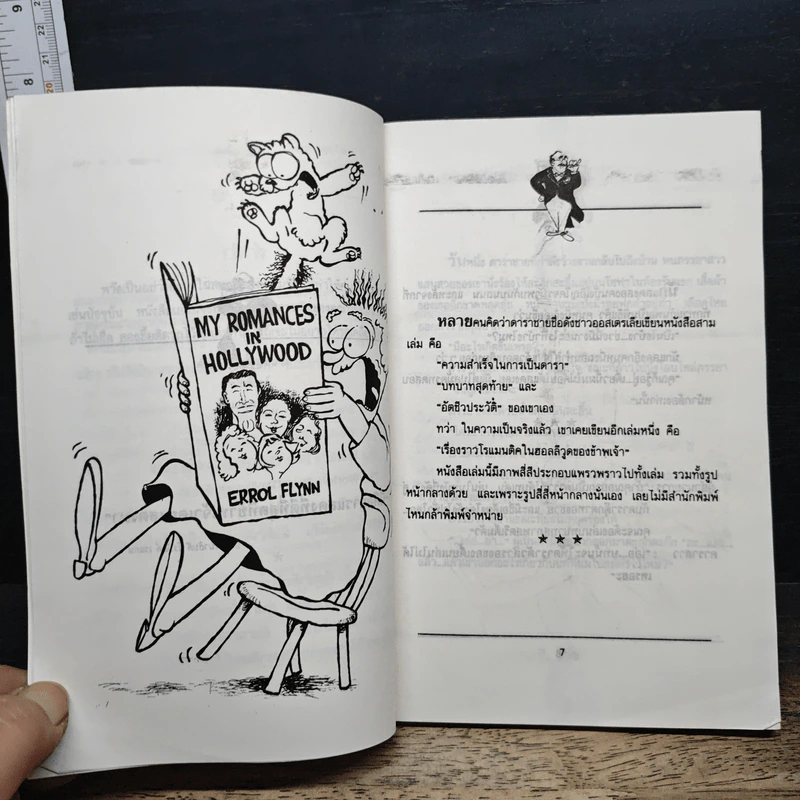 9
8
22
21
20
MY ROMANCES
IN
HOLLYWOOD
ERROL FLYNN
หลายคนคิดว่าดาราชายชื่อดังชาวออสเตรเลียเขียนหนังสือสาม
เล่ม คือ
"ความสำเร็จในการเป็นดารา"
"บทบาทสุดท้าย" และ
"อัตชีวประวัติ" ของเขาเอง
ทว่า ในความเป็นจริงแล้ว เขาเคยเขียนอีกเล่มหนึ่ง คือ
"เรื่องราวโรแมนติคในฮอลลีวูดของข้าพเจ้า"
หนังสือเล่มนี้มีภาพสี่สีประกอบแพรวพราวไปทั้งเล่ม รวมทั้งรูป
หน้ากลางด้วย และเพราะรูปสี่สีหน้ากลางนั่นเอง เลยไม่มีสำนักพิมพ์
ไหนกล้าพิมพ์จำหน่าย
★ ★ ★
7